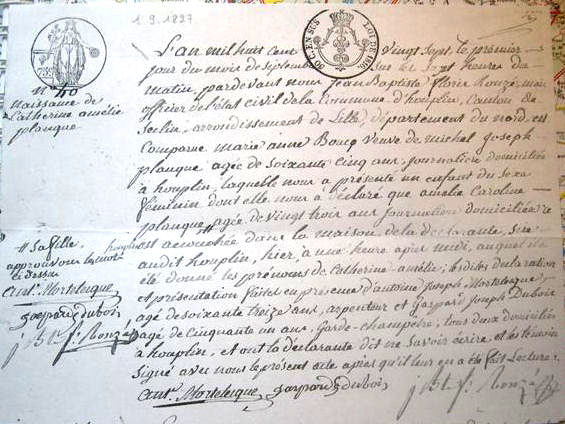 1.9.1827
L'an mil huit cent vingt sept, le premier
jour du mois de septembre sept heures du
matin, pardevant nous jean Baptiste floris Ronzé, maire
officier de l'état civil de la Commune d'houplin, Canton de
Seclin, arrondissement de Lille, département du nord, en
Comparue marie anne Boucq veuve de michel joseph
planque agée de soixante cinq ans, journalière domiciliée
à houplin, laquelle nous a présenté un enfant du sexe
féminin dont elle nous a déclaré que amélie Caroline
planque,# agée de vingt trois ans journalière domiciliée
est accouchée dans la maison de la déclarante, sise
audit houplin, hier, à une heure après midi, auquel
été donné les prénoms de Catherine amélie; lesdites déclaration
et présentation faites en présence d'antoine joseph Mortelecque,
agé de soixante treize ans, arpenteur et Gaspard joseph Dubois
agé de Cinquante un ans, Garde-champetre, tous deux domiciliés
à houplin, et ont la déclarante dit ne savoir écrire et les témoins
Signé avec nous le présent acte après qu'il leur en a été fait Lecture.
ant. Mortelecque gaspard dubois j Bt f. Ronzé
n° 40
naissance de
Catherine amélie
planque
# sa fille
approuvons le mot
ci dessus
ant. Mortelecque
gaspard dubois
j Bt f. Ronzé